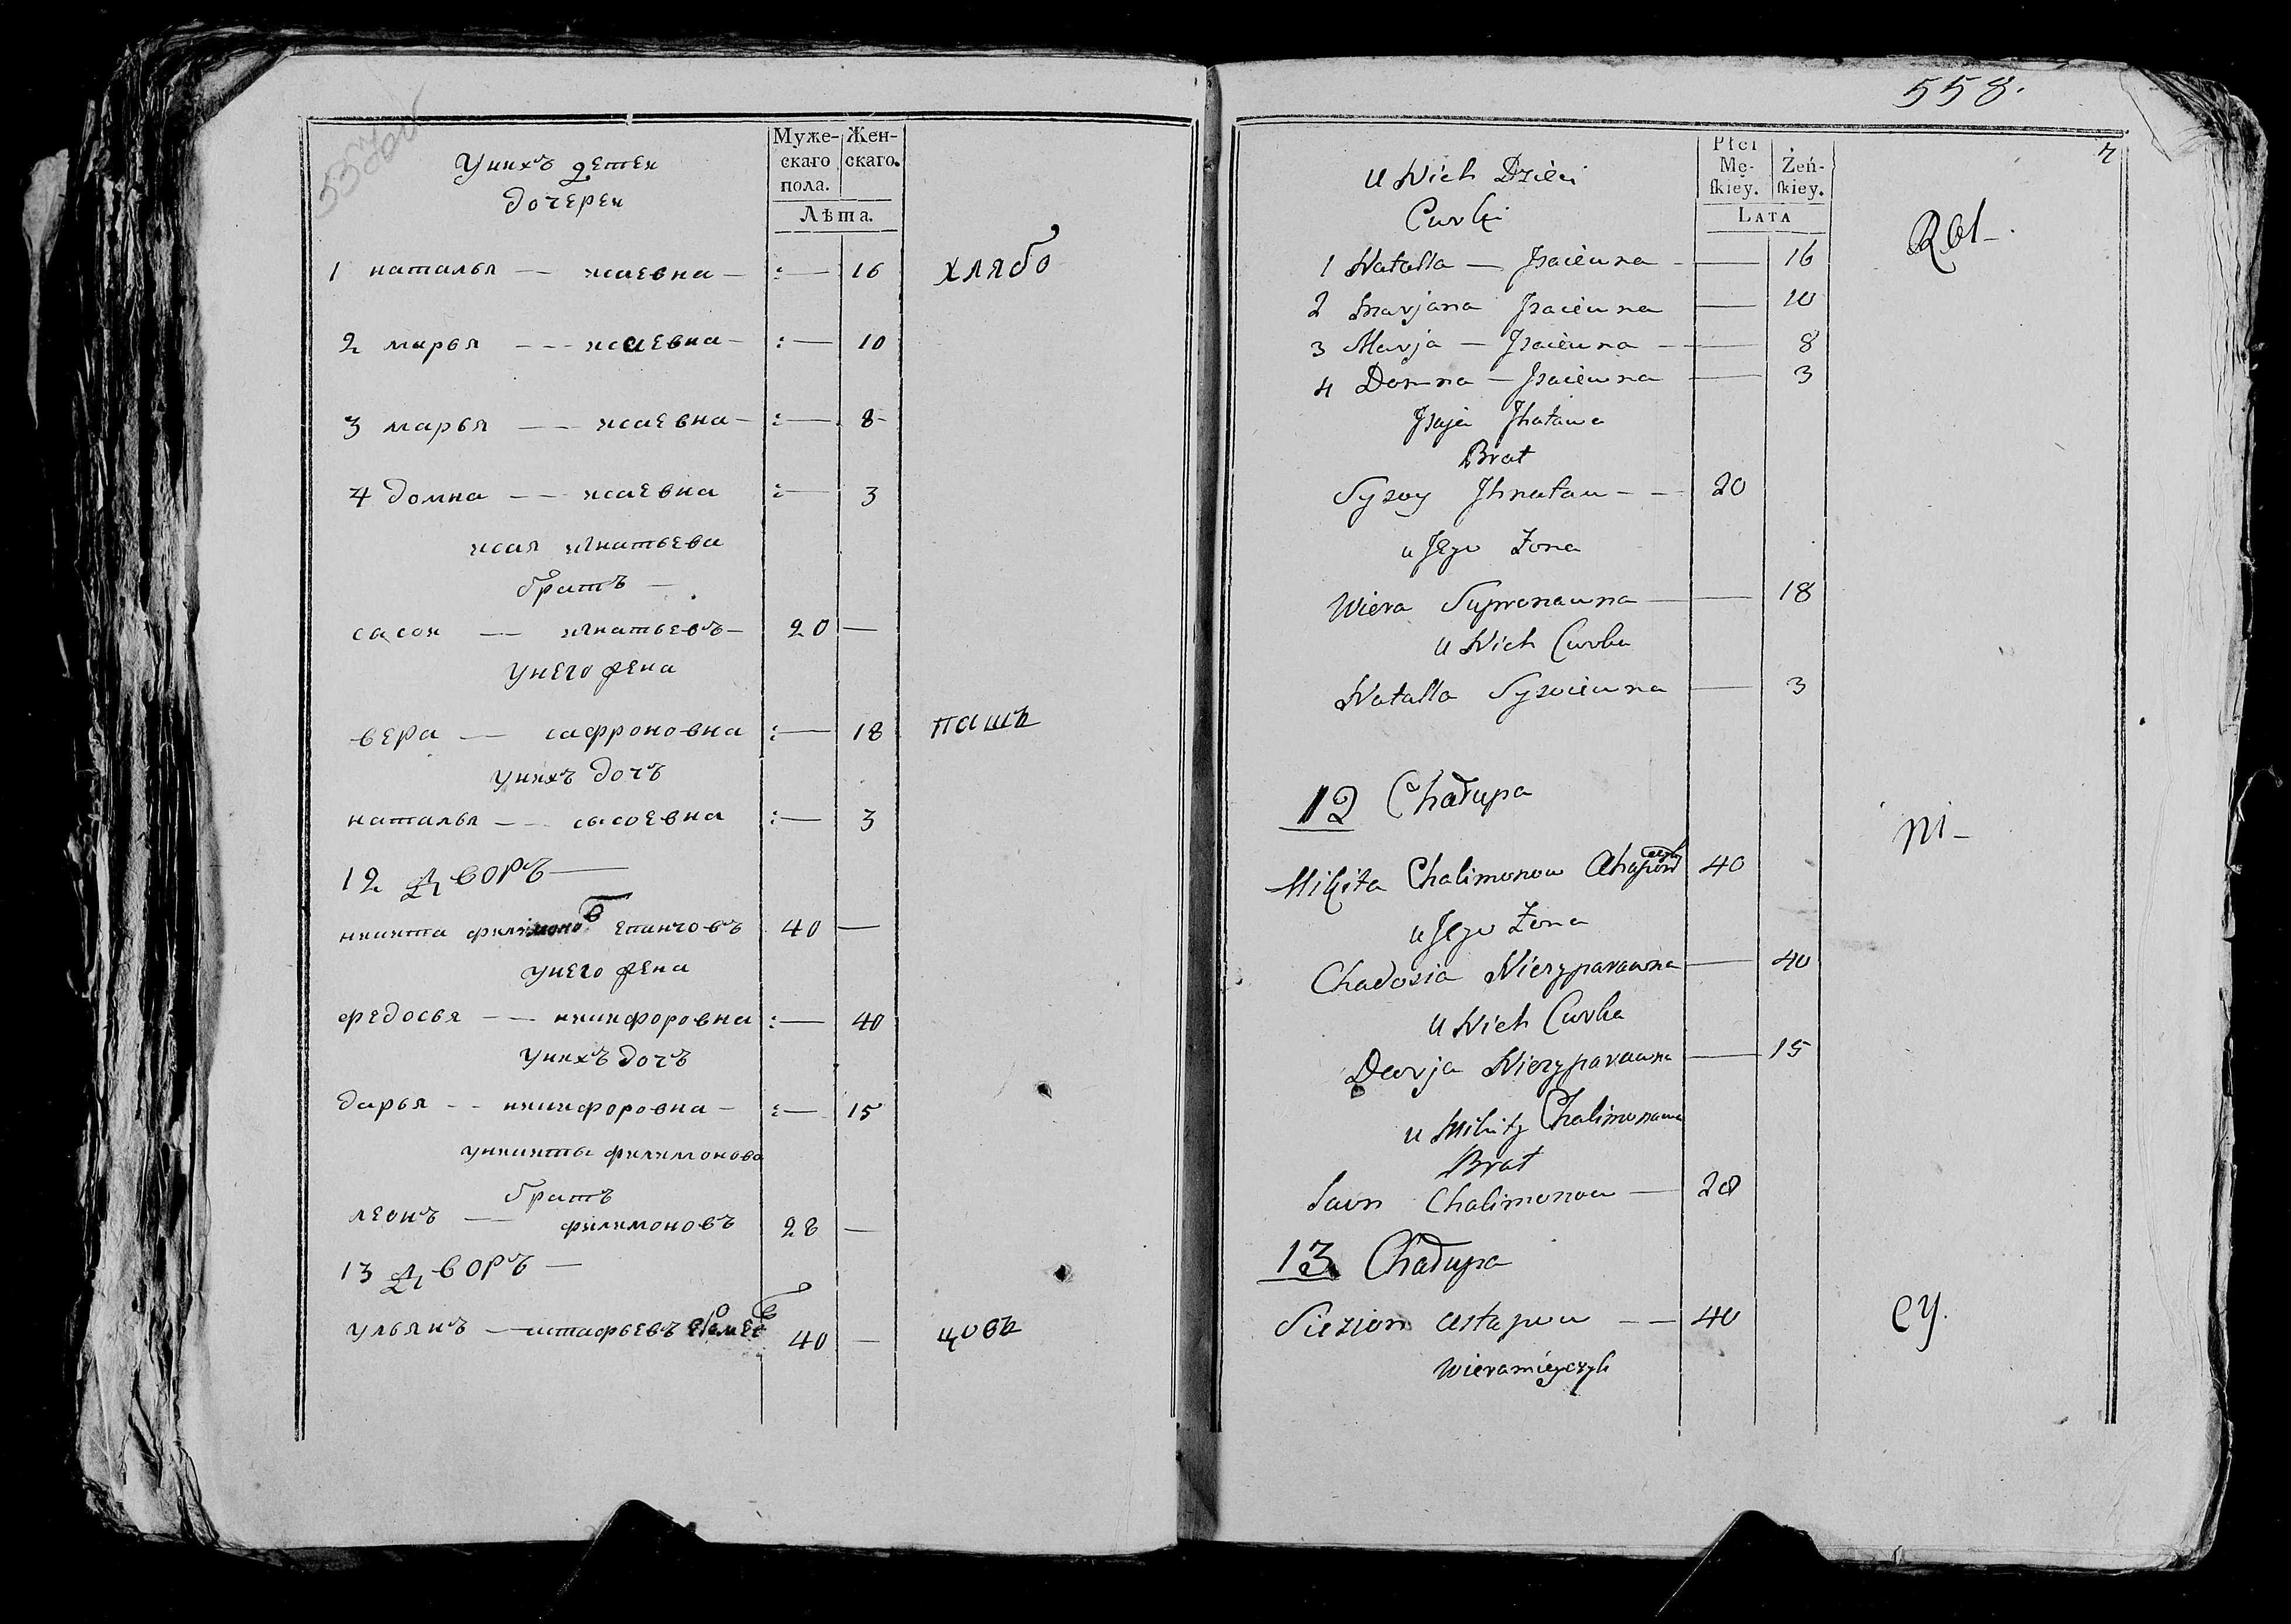 Унихъ детеи
дочереи
Муже-
скаго
пола.
Жен-
скаго.
Лѣта.
1 наталья — исаевна — :— 16 хлябо
2 марья — — исаевна — :— 10
3 марья — — исаевна — :— 8
4 домна — — исаевна :— 3
исая игнатьева
братъ —
сасои — игнатьевъ — 20 —
Унего жена
вера — сафроновна :— 18 пашъ
унихъ дочъ
наталья — — сасоевна :— 3
12 дворъ —
никита филимоновъ епинчовъ 40 —
унего жена
федосья — — никифоровна :— 40
унихъ дочъ
дарья - - никифоровна — :— 15
уникиты филимонова
братъ
леонъ — филимоновъ 28 —
13 дворъ —
ульянъ — астафьевъ 40 — цовъ
558.
7
u Nich Dzieci
Curki
Płci
Mę-
ſkiey.
Żeń-
ſkiey.
LATA
Rol-
1 Natalla — Jsaiewna — 16
2 Marjana Jsaiewna — 10
3 Marja — Jsaiewna — 8
4 Domna — Jsaiewna — 3
Jsaja Jhatawa
Brat
Sysoy Jhnatau - - 20
u Jego Żona
Wiera Supronawna — 18
u Nich Curka
Natalla Sysoiewna — 3
12 Chałupa
ni-
Mikita Chalimonow 40
u Jego Żona
Chadosia Niczyparawna — 40
u Nich Curka
Darja Niczyparawna — 15
u Mikity Chalimonawa
Brat
Lawn Chalimonow — 28
13 Chałupa
Siezion Astapow — — 40 cy.
Wieramieyczyk